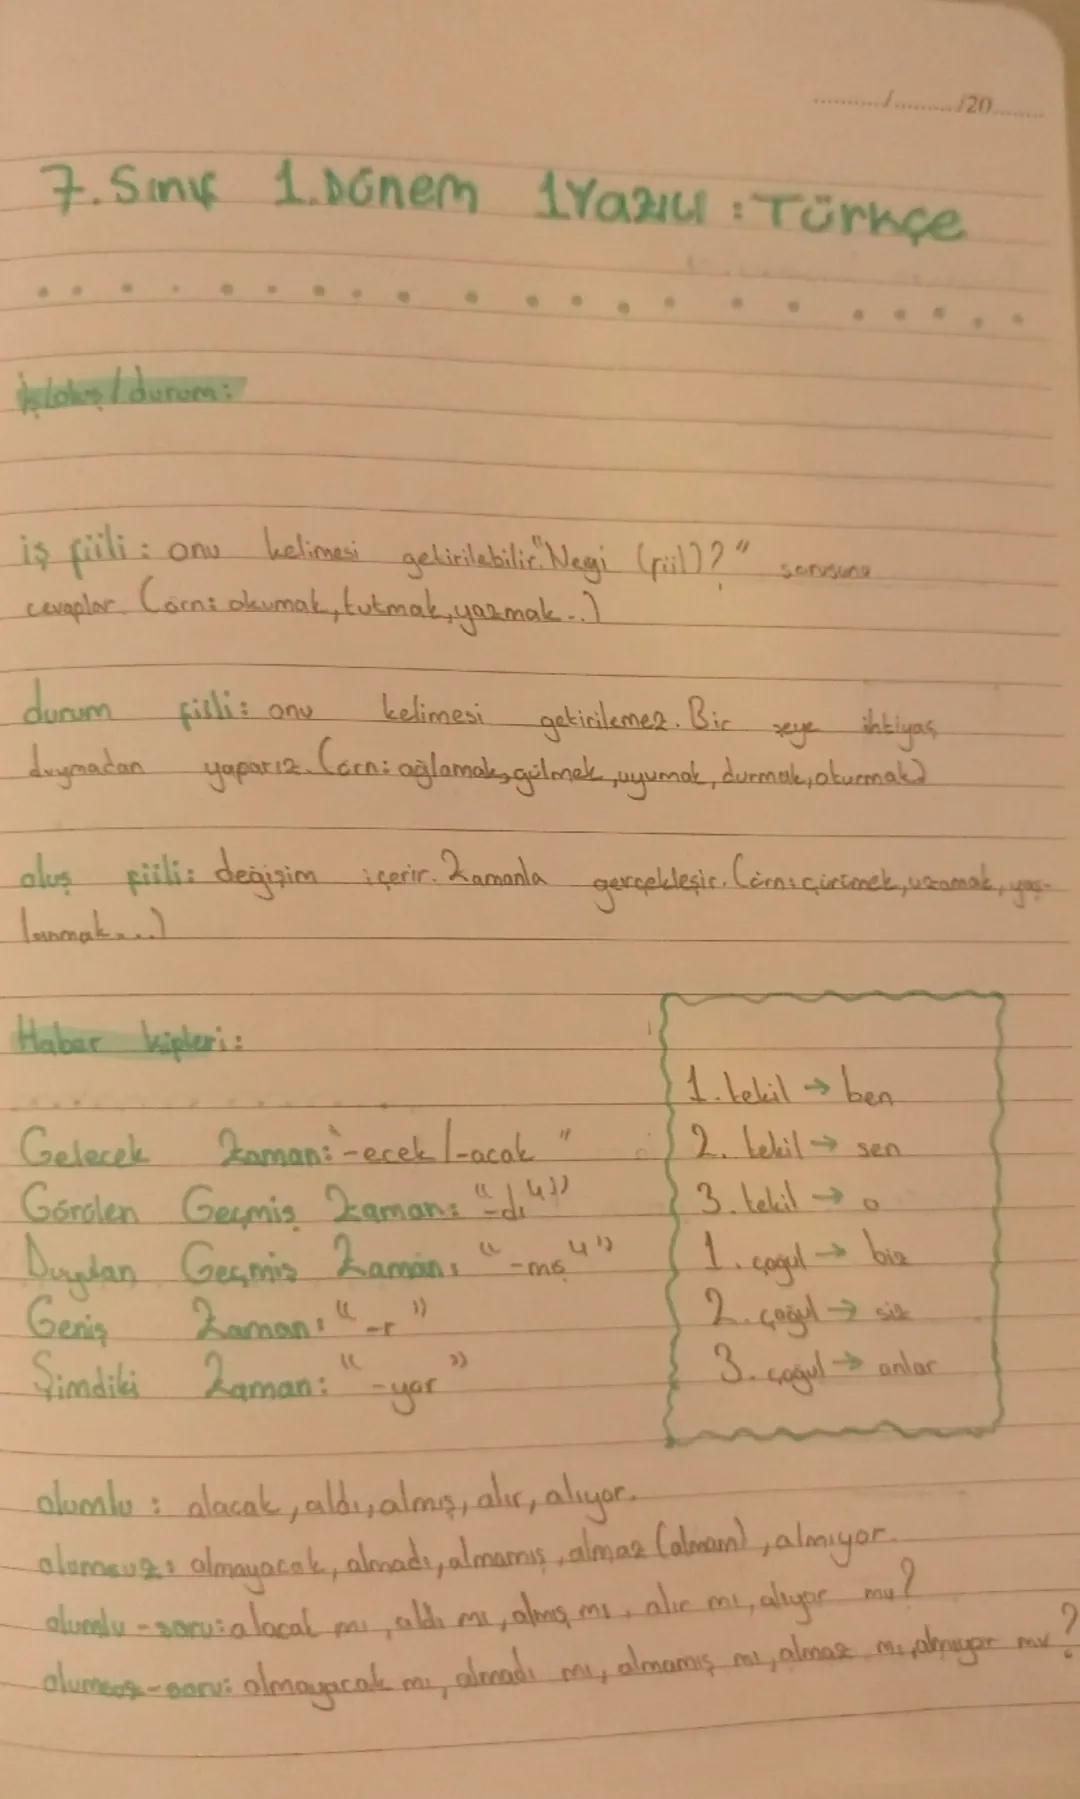 ............/............/20.........
7.Sınıf 1.Dönem 1Yazılı : Türkçe
İş/oluş/durum:
iş fiili : onu kelimesi getirilebilir."Neyi (fiil)?" sorusuna
cevaplar. (örn: okumak, tutmak, yazmak...)
durum fiili: onu kelimesi getirilemez. Bir şeye ihtiyaç
duymadan yaparız. (örn: ağlamak, gülmek, uyumak, durmak, oturmak)
oluş fiili: değişim içerir. Zamanla gerçekleşir. (örn: çürümek, uzamak, yaş-
lanmak...)
Haber kipleri:
Gelecek Zaman: "-ecek/-acak"
Görülen Geçmiş Zaman: "-dı⁴"
Duyulan Geçmiş Zaman: "-mış⁴"
Geniş Zaman: "-r"
Şimdiki Zaman: "-yor"
1. tekil → ben
2. tekil → sen
3. tekil → o
1. çoğul → biz
2. çoğul → siz
3. çoğul → onlar
olumlu : alacak, aldı, almış, alır, alıyor.
olumsuz: almayacak, almadı, almamış, almaz (almam), almıyor.
olumlu-soru: alacak mı, aldı mı, almış mı, alır mı, alıyor mu?
olumsuz-soru: almayacak mı, almadı mı, almamış mı, almaz mı, almıyor mu?